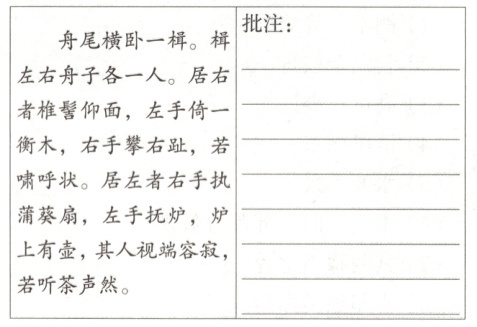 舟尾横卧一楫。楫
左右舟子各一人。居右
者椎髻仰面，左手倚一
衡木，右手攀右趾，若
啸呼状。居左者右手执
蒲葵扇，左手抚炉，炉
上有壶，其人视端容寂，
若听茶声然。
批注：